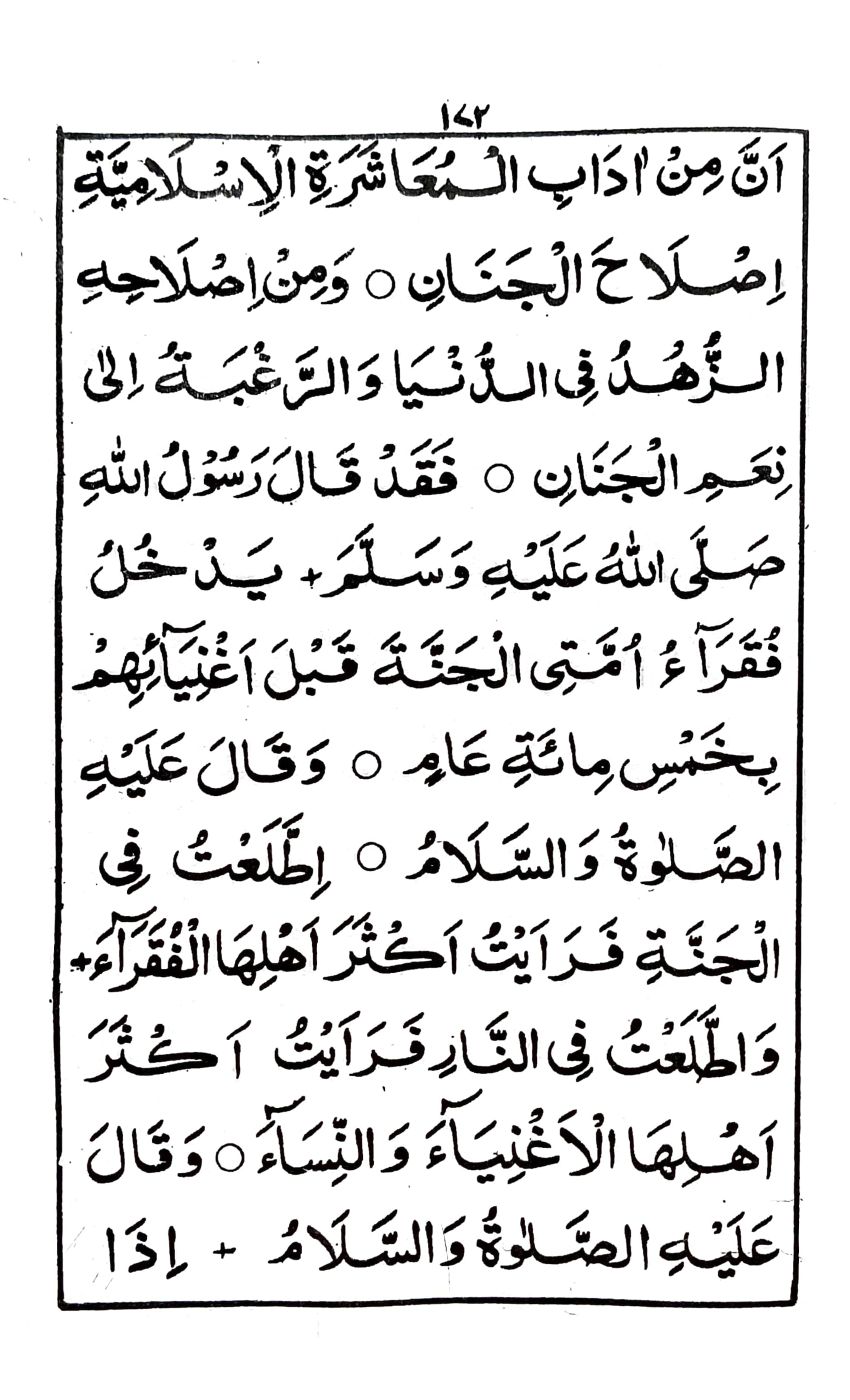 ۱۷۲
اَنَّ مِنْ اٰدَابِ الْمُعَاشَرَةِ الْاِسْلَامِيَّةِ
اِصْلَاحَ الْجَنَانِ ○ وَمِنْ اِصْلَاحِهِ
الزُّهْدُ فِى الدُّنْيَا وَالرَّغْبَةُ اِلٰى
نِعَمِ الْجَنَانِ ○ فَقَدْ قَالَ رَسُوْلُ اللّٰهِ
صَلَّى اللّٰهُ عَلَيْهِ وَسَلَّمَ + يَدْخُلُ
فُقَرَآءُ اُمَّتِى الْجَنَّةَ قَبْلَ اَغْنِيَآئِهِمْ
بِخَمْسِ مِائَةِ عَامٍ ○ وَقَالَ عَلَيْهِ
الصَّلٰوةُ وَالسَّلَامُ ○ اِطَّلَعْتُ فِى
الْجَنَّةِ فَرَاَيْتُ اَكْثَرَ اَهْلِهَا الْفُقَرَآءَ +
وَاطَّلَعْتُ فِى النَّارِ فَرَاَيْتُ اَكْثَرَ
اَهْلِهَا الْاَغْنِيَآءَ وَالنِّسَآءَ ○ وَقَالَ
عَلَيْهِ الصَّلٰوةُ وَالسَّلَامُ + اِذَا